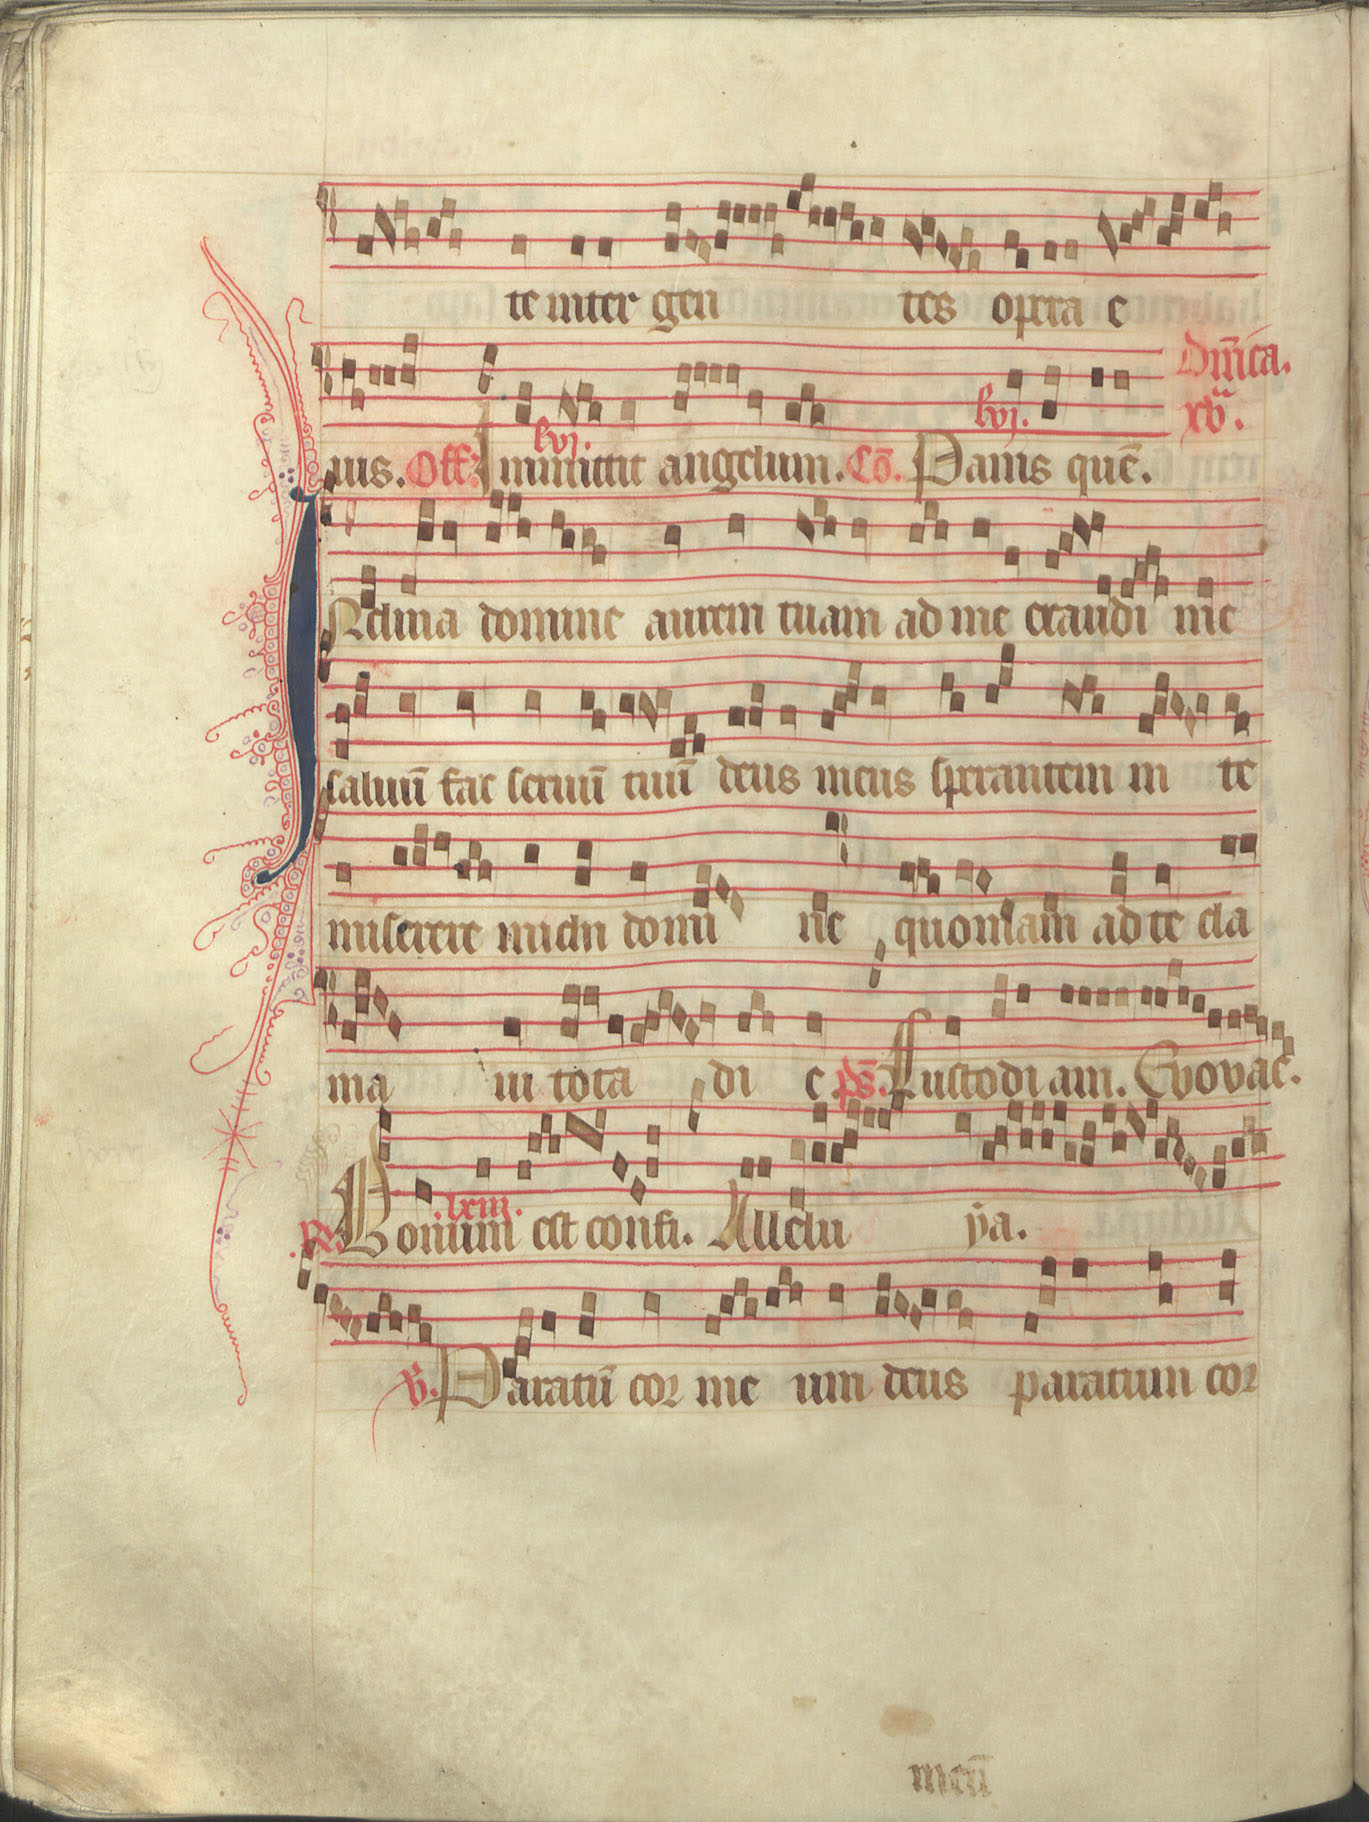 te inter gen tes opera e
Dn̄ica.
xv.ª
ius. Off. Inmittit angelum. Cō. Panis quē.
lvj. lvj.
Inclina domine aurem tuam ad me exaudi me
saluū fac seruū tuū deus meus sperantem in te
miserere michi domi ne quoniam ad te cla
ma ui tota di e ps. Custodi am. Evovae.
lxiii.
R. Bonum est confi. Alleluy ya.
V. Paratū cor me um deus paratum cor
meū